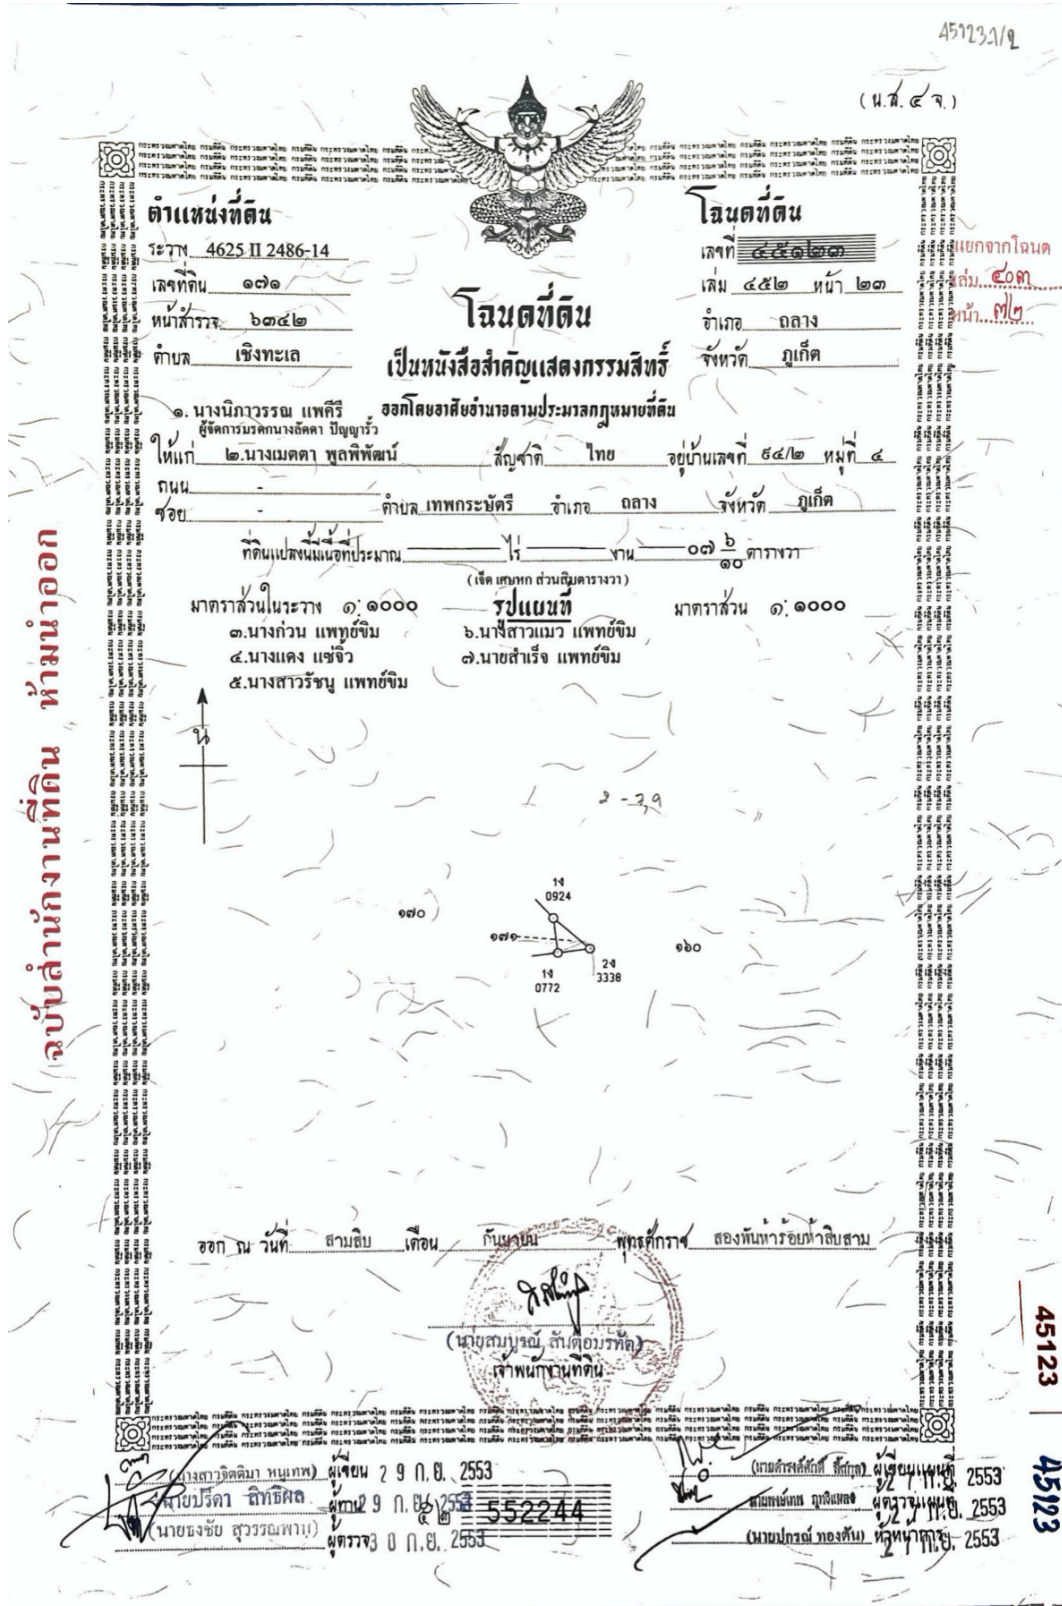 45123.1/2
(น.ส. ๔ จ.)
ตำแหน่งที่ดิน
ระวาง 4625 II 2486-14
เลขที่ดิน ๑๗๑
หน้าสำรวจ ๖๓๔๒
ตำบล เชิงทะเล
โฉนดที่ดิน
เลขที่ ๔๕๑๒๓
เล่ม ๔๕๒ หน้า ๒๓
อำเภอ ถลาง
จังหวัด ภูเก็ต
แยกจากโฉนด
เล่ม ๔๐๓
หน้า ๗๒
โฉนดที่ดิน
เป็นหนังสือสำคัญแสดงกรรมสิทธิ์
ออกโดยอาศัยอำนาจตามประมวลกฎหมายที่ดิน
๑. นางนิภาวรรณ แพคีรี
ผู้จัดการมรดกนางลัดดา ปัญญารั้ว
ให้แก่ ๒.นางเมตตา พูลพิพัฒน์ สัญชาติ ไทย อยู่บ้านเลขที่ ๙๔/๒ หมู่ที่ ๔
ถนน -
ซอย - ตำบล เทพกระษัตรี อำเภอ ถลาง จังหวัด ภูเก็ต
ที่ดินแปลงนี้มีเนื้อที่ประมาณ ไร่ งาน ๐๗ ๖/๑๐ ตารางวา
(เจ็ด เศษหก ส่วนสิบตารางวา)
มาตราส่วนในระวาง ๑: ๑๐๐๐ รูปแผนที่ มาตราส่วน ๑: ๑๐๐๐
๓.นางก่วน แพทย์ขิม ๖.นางสาวแมว แพทย์ขิม
๔.นางแดง แซ่จิ๋ว ๗.นายสำเร็จ แพทย์ขิม
๕.นางสาวรัชนู แพทย์ขิม
น
1ง
0924
๑๗๐
๑๗๑
๑๖๐
1ง
0772
2ง
3338
ออก ณ วันที่ สามสิบ เดือน กันยายน พุทธศักราช สองพันห้าร้อยห้าสิบสาม
(นายสมบูรณ์ สันต๊อบรหัด)
เจ้าพนักงานที่ดิน
(นางสาวจิตติมา หนูเทพ) ผู้เขียน 29 ก.ย. 2553
นายปรีดา สิทธิผล ผู้ทาน 29 ก.ย. 2553
(นายธงชัย สุวรรณพาณ) ผู้ตรวจ 30 ก.ย. 2553
๕๒ 552244
ผู้เขียนแผนที่ 2553
ผู้ตรวจแผนที่ 27 ก.ย. 2553
(นายปกรณ์ ทองตัน) หัวหน้าการ 27 ก.ย. 2553
ฉบับสำนักงานที่ดิน ห้ามนำออก
45123
45123